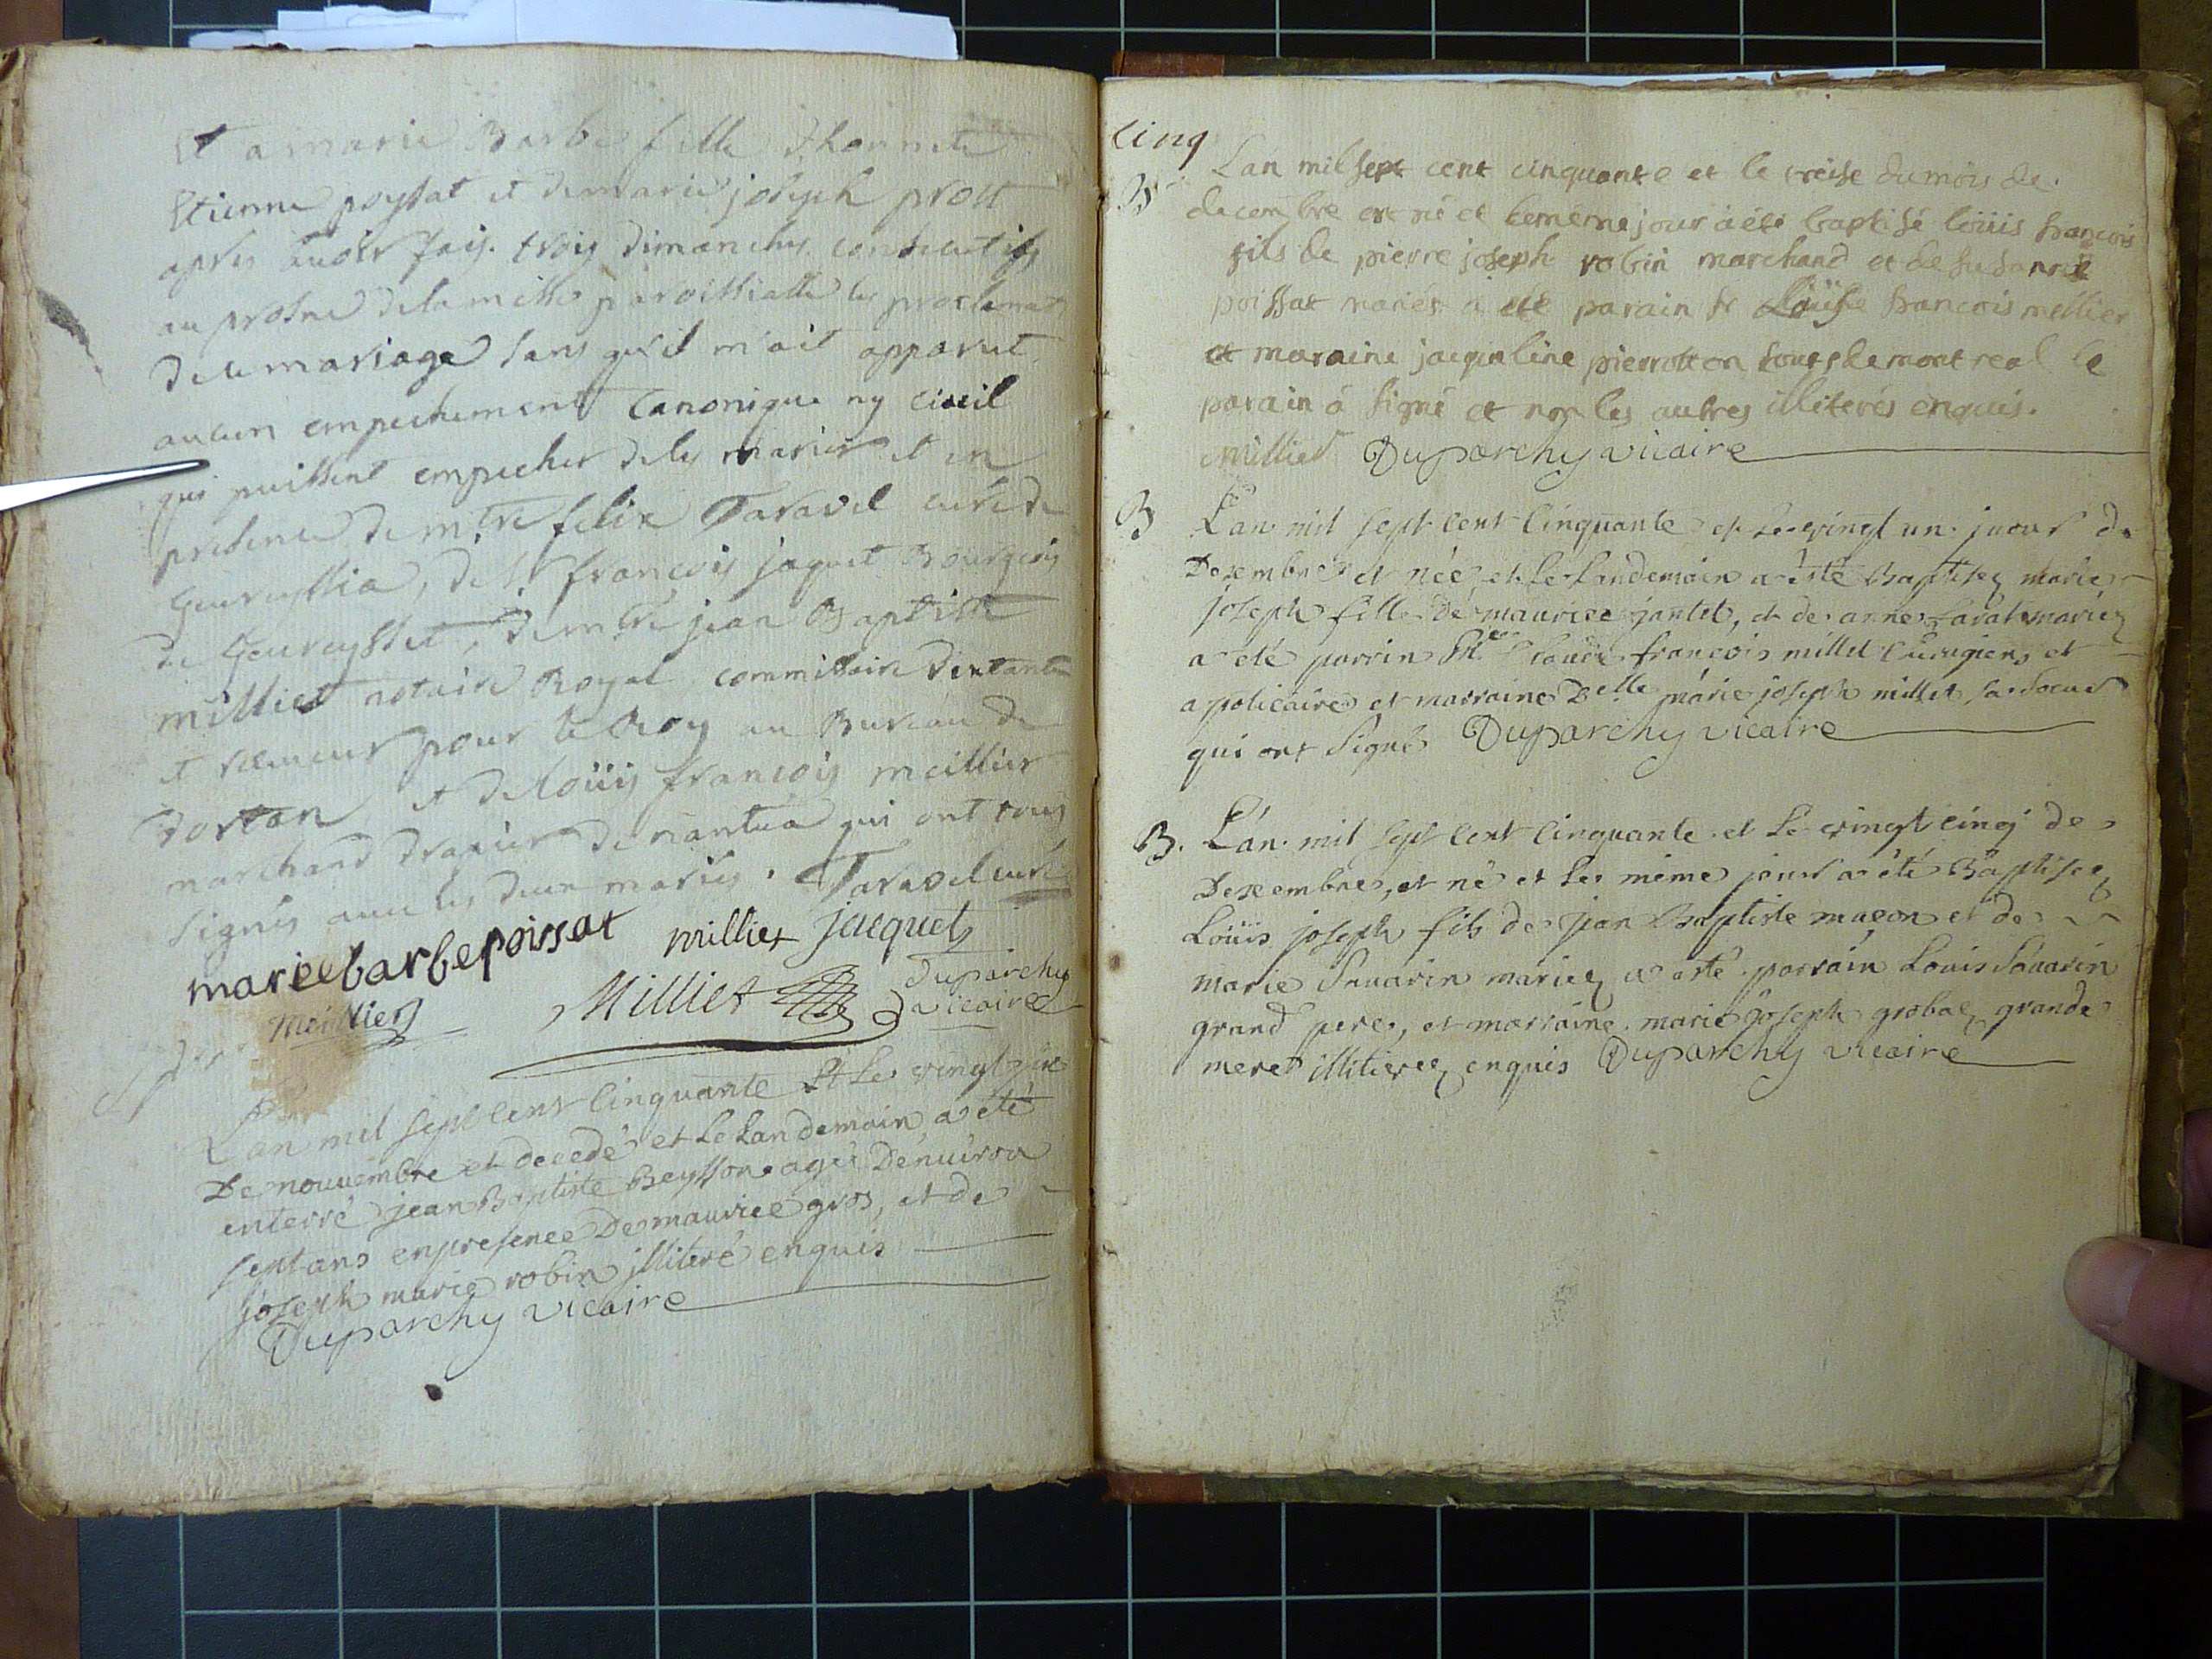 Et a marie Barbe fille d'honnete
Etienne poyssat et de marie joseph prost
apres auoir fais trois dimanches consecutifs
au prosne de la messe paroissialle les proclamat
de le mariage sans qu'il m'ait apparut
aucun empechement Canonique ny ciuil
qui puissent empecher de les marier et en
presence de mtre felix Tarauel curé de
Geureyssia, de Sr francois jaquet Bourgeois
de Geureysset, de mtre jean Baptiste
milliet notaire Royal commissaire
et receueur pour le Roy au Bureau de
dortan et de loüis françois meillier
marchand drapier de nantua qui ont tous
signés auec les deux mariés. Tarauel curé
marie barbe poissat milliet jacquet
meillier Milliet Duparchy vicaire
L'an mil sept cent Cinquante Et Le vingt
De nouuembre et decedé et Le Landemain a été
enterré jean Baptiste Beysson agé D'enuiron
sept ans en presence De maurice gros, et de
joseph marie robin jlliteré enquis
Duparchy vicaire
cinq
B L'an mil sept cent cinquante et le treise du mois de
decembre est né et le méme jour a été baptisé loüis francois
fils de pierre joseph robin marchand et de susanne
poissat mariés a été parain sr Loüis francois mellier
et maraine jacqueline pierrotton tous de montreal le
parain à signé et non les autres illiterés enquis.
millier Duparchy vicaire
B L'an mil sept cent Cinquante et Le vingt un juour de
Desembre et née et Le Landemain a été Baptisez marie
joseph fille de maurice jantet, et de anne mariez
a été parrin Claude francois millet Cirugiens et
apoticaire et marraine Delle marie joseph millet sa soeur
qui ont signé Duparchy vicaire
B. L'an mil sept cent Cinquante et Le vingt cinq de
Desembre, et né et Le méme jour a été Baptisez
Loüis joseph fils de jean Baptiste maçon et de
marie Sauarin mariez a été parrain Louis Sauarin
grand pere, et marraine marie joseph grobas grande
mere illitierez enquis Duparchy vicaire